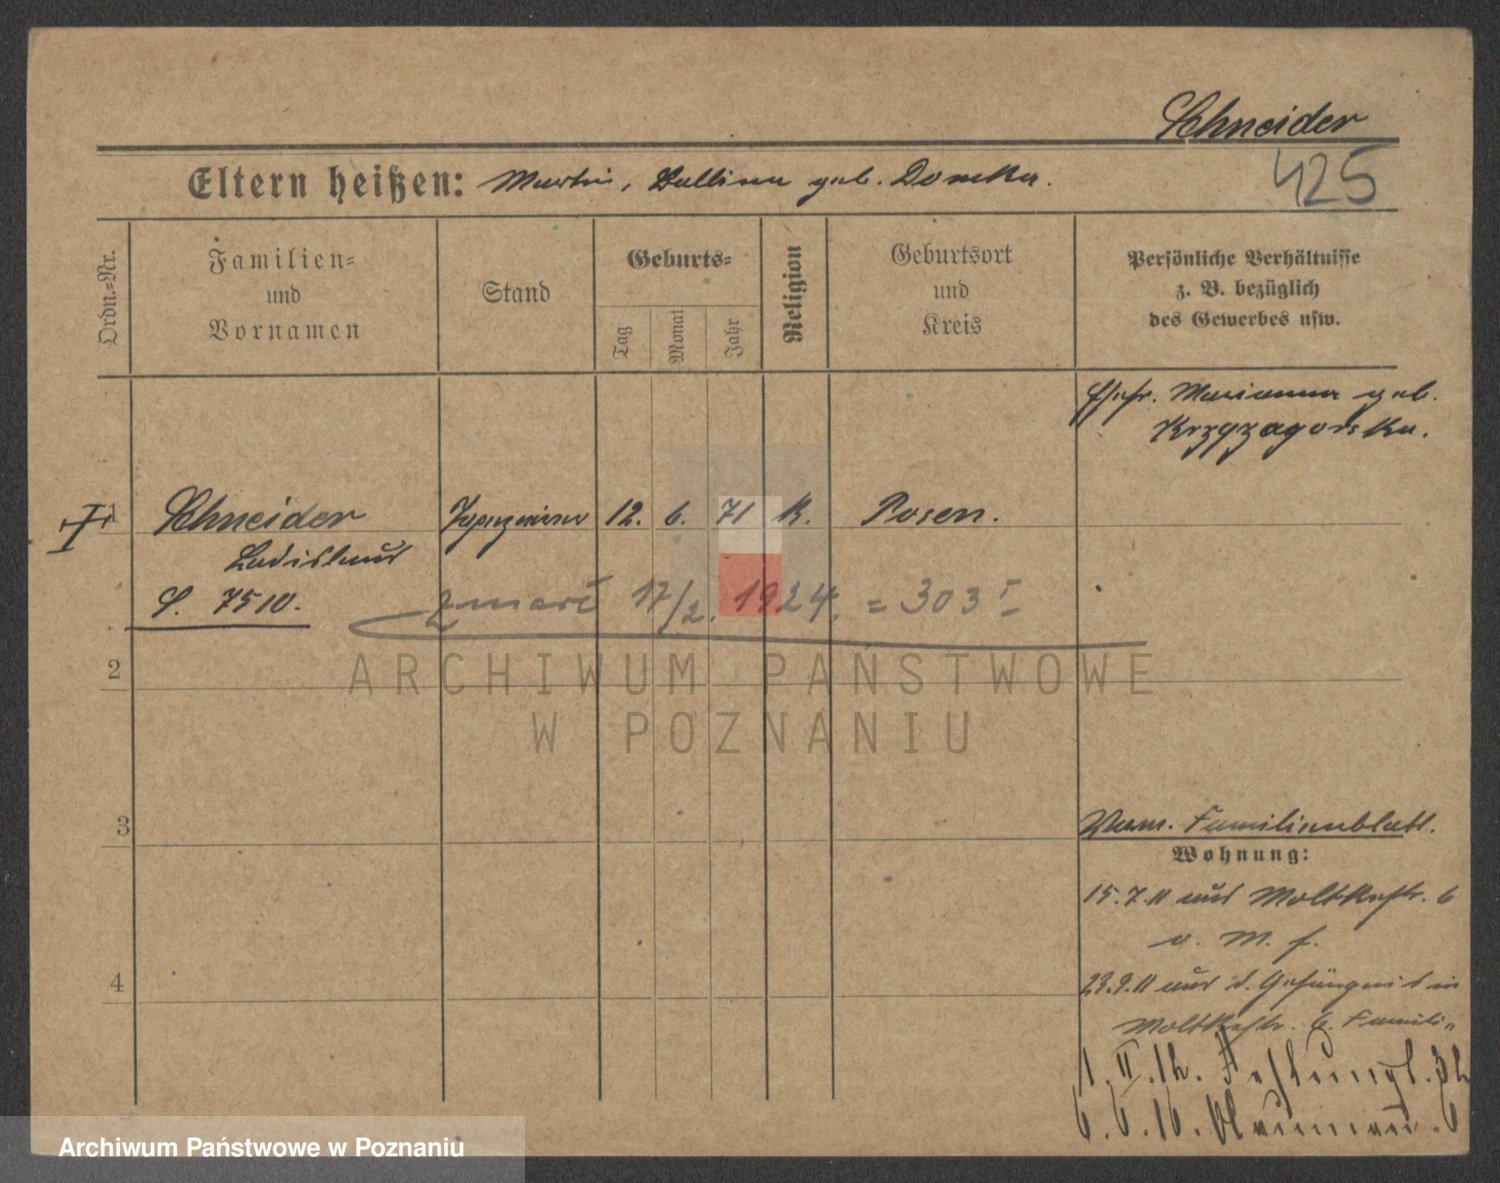 Schneider
425
Eltern heißen: Martin, Hallina geb. Domka.
Ordn.-Nr.
Familien-
und
Vornamen
Stand
Geburts-
Tag
Monat
Jahr
Religion
Geburtsort
und
Kreis
Persönliche Verhältnisse
z. B. bezüglich
des Gewerbes usw.
Ehefr. Marianna geb.
Krzyzagorska.
1 Schneider 12. 6. 71 K. Posen.
Ladislaus
S. 7510.
zmarł 17/2. 1924. = 303 I
2
3
4
Fam. Familienblatt.
Wohnung:
15.7.11 aus Moltkestr. 6
v. M. f.
23.9.11 aus d. Gefängnis in
Moltkestr. 6. Famili
1. II. 12. Festungs.
6. 6. 16. Naumann. 6
ARCHIWUM PAŃSTWOWE
W POZNANIU
Archiwum Państwowe w Poznaniu